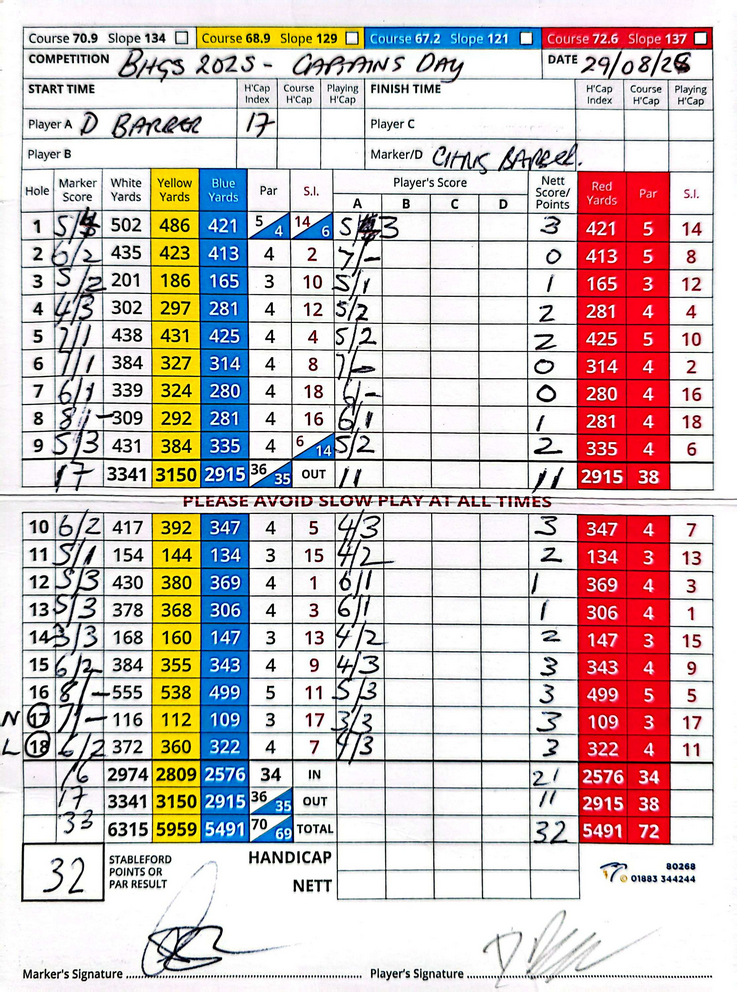 Course 70.9 Slope 134 Course 68.9 Slope 129 Course 67.2 Slope 121 Course 72.6 Slope 137
COMPETITION BHGS 2025 - CAPTAINS DAY DATE 29/08/25
START TIME H'Cap Index Course H'Cap Playing H'Cap FINISH TIME H'Cap Index Course H'Cap Playing H'Cap
Player A D BARBER 17 Player C
Player B Marker/D CHRIS BARBER.
Hole Marker Score White Yards Yellow Yards Blue Yards Par S.I. Player's Score A B C D Nett Score/Points Red Yards Par S.I.
1 5/ 502 486 421 5/4 14/6 5/3 3 421 5 14
2 6/2 435 423 413 4 2 7/- 0 413 5 8
3 5/2 201 186 165 3 10 5/1 1 165 3 12
4 4/3 302 297 281 4 12 5/2 2 281 4 4
5 7/1 438 431 425 4 4 5/2 2 425 5 10
6 7/1 384 327 314 4 8 7/- 0 314 4 2
7 6/1 339 324 280 4 18 6/- 0 280 4 16
8 8/- 309 292 281 4 16 6/1 1 281 4 18
9 5/3 431 384 335 4 6/14 5/2 2 335 4 6
17 3341 3150 2915 36/35 OUT 11 11 2915 38
PLEASE AVOID SLOW PLAY AT ALL TIMES
10 6/2 417 392 347 4 5 4/3 3 347 4 7
11 5/1 154 144 134 3 15 4/2 2 134 3 13
12 5/3 430 380 369 4 1 6/1 1 369 4 3
13 5/3 378 368 306 4 3 6/1 1 306 4 1
14 3/3 168 160 147 3 13 4/2 2 147 3 15
15 6/2 384 355 343 4 9 4/3 3 343 4 9
16 8/- 555 538 499 5 11 5/3 3 499 5 5
N 17 7/- 116 112 109 3 17 3/3 3 109 3 17
L 18 6/2 372 360 322 4 7 4/3 3 322 4 11
16 2974 2809 2576 34 IN 21 2576 34
17 3341 3150 2915 36/35 OUT 11 2915 38
33 6315 5959 5491 70/69 TOTAL 32 5491 72
32 STABLEFORD POINTS OR PAR RESULT HANDICAP
NETT
80268
01883 344244
Marker's Signature Player's Signature